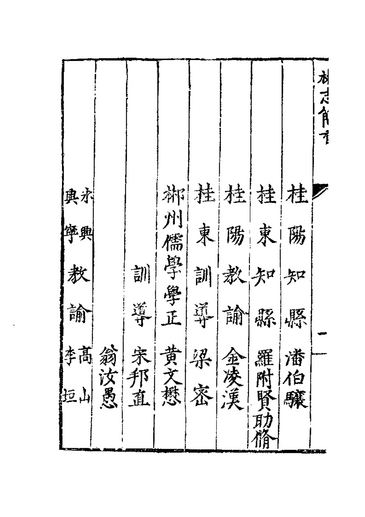 桂陽知縣潘伯驤
桂東知縣羅附賢助脩
桂陽教諭金凌漢
桂東訓導梁密
郴州儒學學正黃文懋
訓導宋邦直
翁汝愚
永興興寧教諭高山李垣